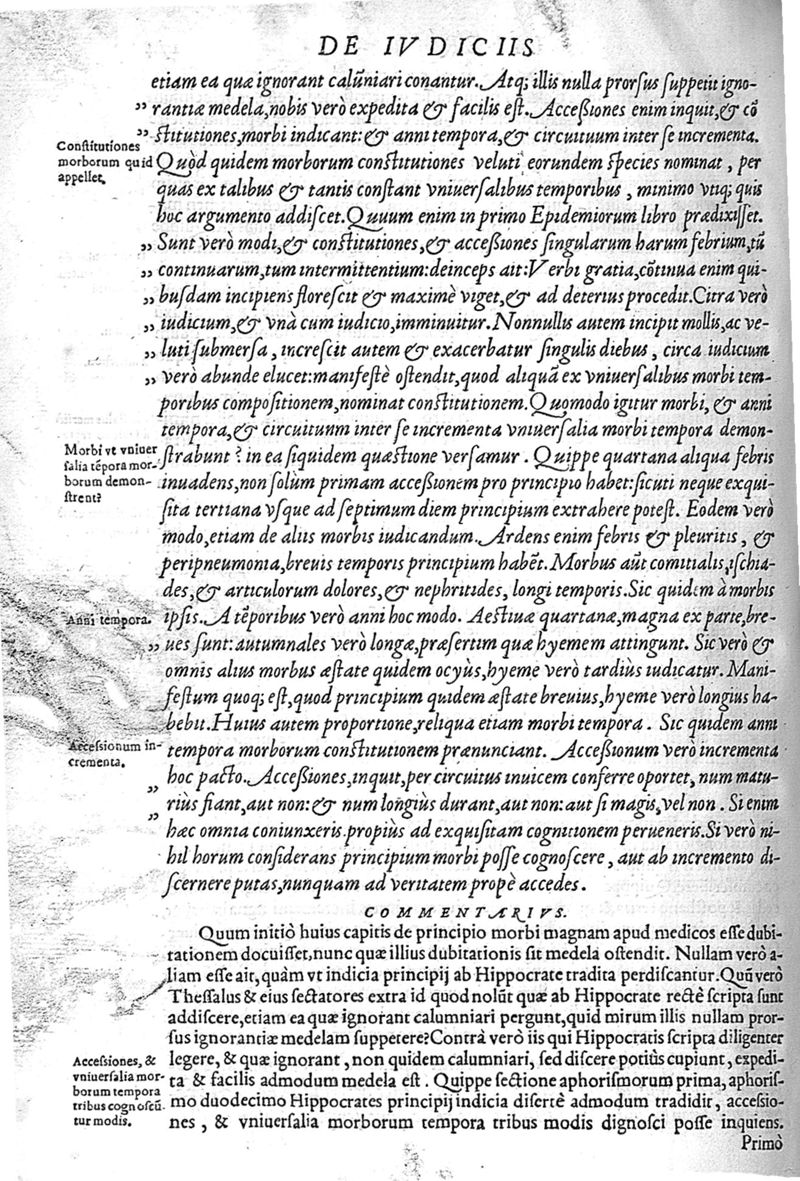 DE IVDICIIS
etiam ea quæ ignorant calũniari conantur. Atq; illis nulla prorsus suppetit igno-
„ rantiæ medela, nobis verò expedita & facilis est. Accessiones enim inquit, & cõ
„ stitutiones, morbi indicant: & anni tempora, & circuituum inter se incrementa.
Constitutiones
morborum quid
appellet.
Quòd quidem morborum constitutiones veluti eorundem species nominat, per
quas ex talibus & tantis constant vniuersalibus temporibus, minimo vtiq; quis
hoc argumento addiscet. Quum enim in primo Epidemiorum libro prædixisset.
„ Sunt verò modi, & constitutiones, & accessiones singularum harum febrium, tũ
„ continuarum, tum intermittentium: deinceps ait: Verbi gratia, cõtinua enim qui-
„ busdam incipiens florescit & maximè viget, & ad deterius procedit. Citra verò
„ iudicium, & vnà cum iudicio, imminuitur. Nonnullis autem incipit mollis, ac ve-
„ luti submersa, increscit autem & exacerbatur singulis diebus, circa iudicium
„ verò abunde elucet: manifestè ostendit, quod aliquã ex vniuersalibus morbi tem-
poribus compositionem, nominat constitutionem. Quomodo igitur morbi, & anni
tempora, & circuituum inter se incrementa vniuersalia morbi tempora demon-
Morbi vt vniuer
salia tẽpora mor-
borum demon-
strent?
strabunt? in ea siquidem quæstione versamur. Quippe quartana aliqua febris
inuadens, non solùm primam accessionem pro principio habet: sicuti neque exqui-
sita tertiana vsque ad septimum diem principium extrahere potest. Eodem verò
modo, etiam de aliis morbis iudicandum. Ardens enim febris & pleuritis, &
peripneumonia, breuis temporis principium habẽt. Morbus aũt comitialis, ischia-
des, & articulorum dolores, & nephritides, longi temporis. Sic quidem à morbis
Anni tempora.
ipsis. A tẽporibus verò anni hoc modo. Aestiuæ quartanæ, magna ex parte, bre-
„ ues sunt: autumnales verò longæ, præsertim quæ hyemem attingunt. Sic verò &
omnis alius morbus æstate quidem ocyùs, hyeme verò tardiùs iudicatur. Mani-
festum quoq; est, quod principium quidem æstate breuius, hyeme verò longius ha-
bebit. Huius autem proportione, reliqua etiam morbi tempora. Sic quidem anni
Accessionum in-
crementa.
tempora morborum constitutionem prænunciant. Accessionum verò incrementa
hoc pacto. Accessiones, inquit, per circuitus inuicem conferre oportet, num matu-
„ riùs fiant, aut non: & num longiùs durant, aut non: aut si magis, vel non. Si enim
„ hæc omnia coniunxeris propiùs ad exquisitam cognitionem perueneris. Si verò ni-
hil horum considerans principium morbi posse cognoscere, aut ab incremento di-
scernere putas, nunquam ad veritatem propè accedes.
COMMENTARIVS.
Quum initiò huius capitis de principio morbi magnam apud medicos esse dubi-
tationem docuisset, nunc quæ illius dubitationis sit medela ostendit. Nullam verò a-
liam esse ait, quàm vt indicia principij ab Hippocrate tradita perdiscantur. Quũ verò
Thessalus & eius sectatores extra id quod nolũt quæ ab Hippocrate rectè scripta sunt
addiscere, etiam ea quæ ignorant calumniari pergunt, quid mirum illis nullam pror-
sus ignorantiæ medelam suppetere? Contrà verò iis qui Hippocratis scripta diligenter
Accessiones, &
vniuersalia mor-
borum tempora
tribus cognoscũ-
tur modis.
legere, & quæ ignorant, non quidem calumniari, sed discere potiùs cupiunt, expedi-
ta & facilis admodum medela est. Quippe sectione aphorismorum prima, aphoris-
mo duodecimo Hippocrates principij indicia disertè admodum tradidit, accessio-
nes, & vniuersalia morborum tempora tribus modis dignosci posse inquiens.
Primò